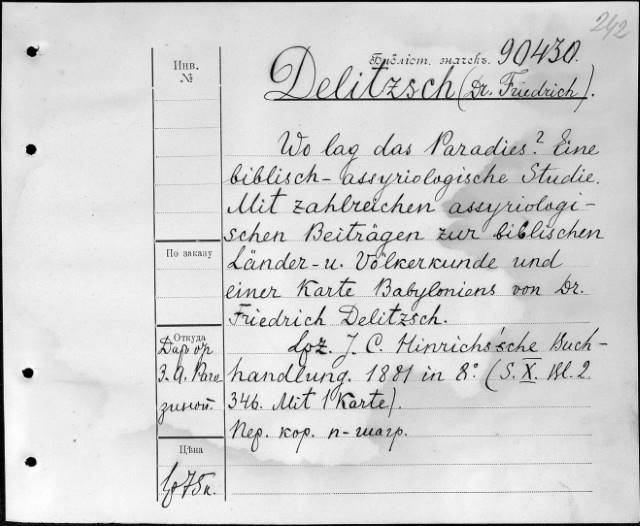 242
Библіот. значекъ. 90430.
Delitzsch (Dr. Friedrich).
Инв.
№
Wo lag das Paradies? Eine
biblisch-assyriologische Studie.
Mit zahlreichen assyriologi-
schen Beiträgen zur biblischen
Länder- u. Völkerkunde und
einer Karte Babyloniens von Dr.
Friedrich Delitzsch.
Lpz. J. C. Hinrichs'sche Buch-
handlung. 1881 in 8º (S. X. Bl. 2
346. Mit 1 Karte).
Пер. кор. п-шагр.
По заказу
Откуда
Даръ от
З. А. Раго
зиной.
Цѣна
75к.